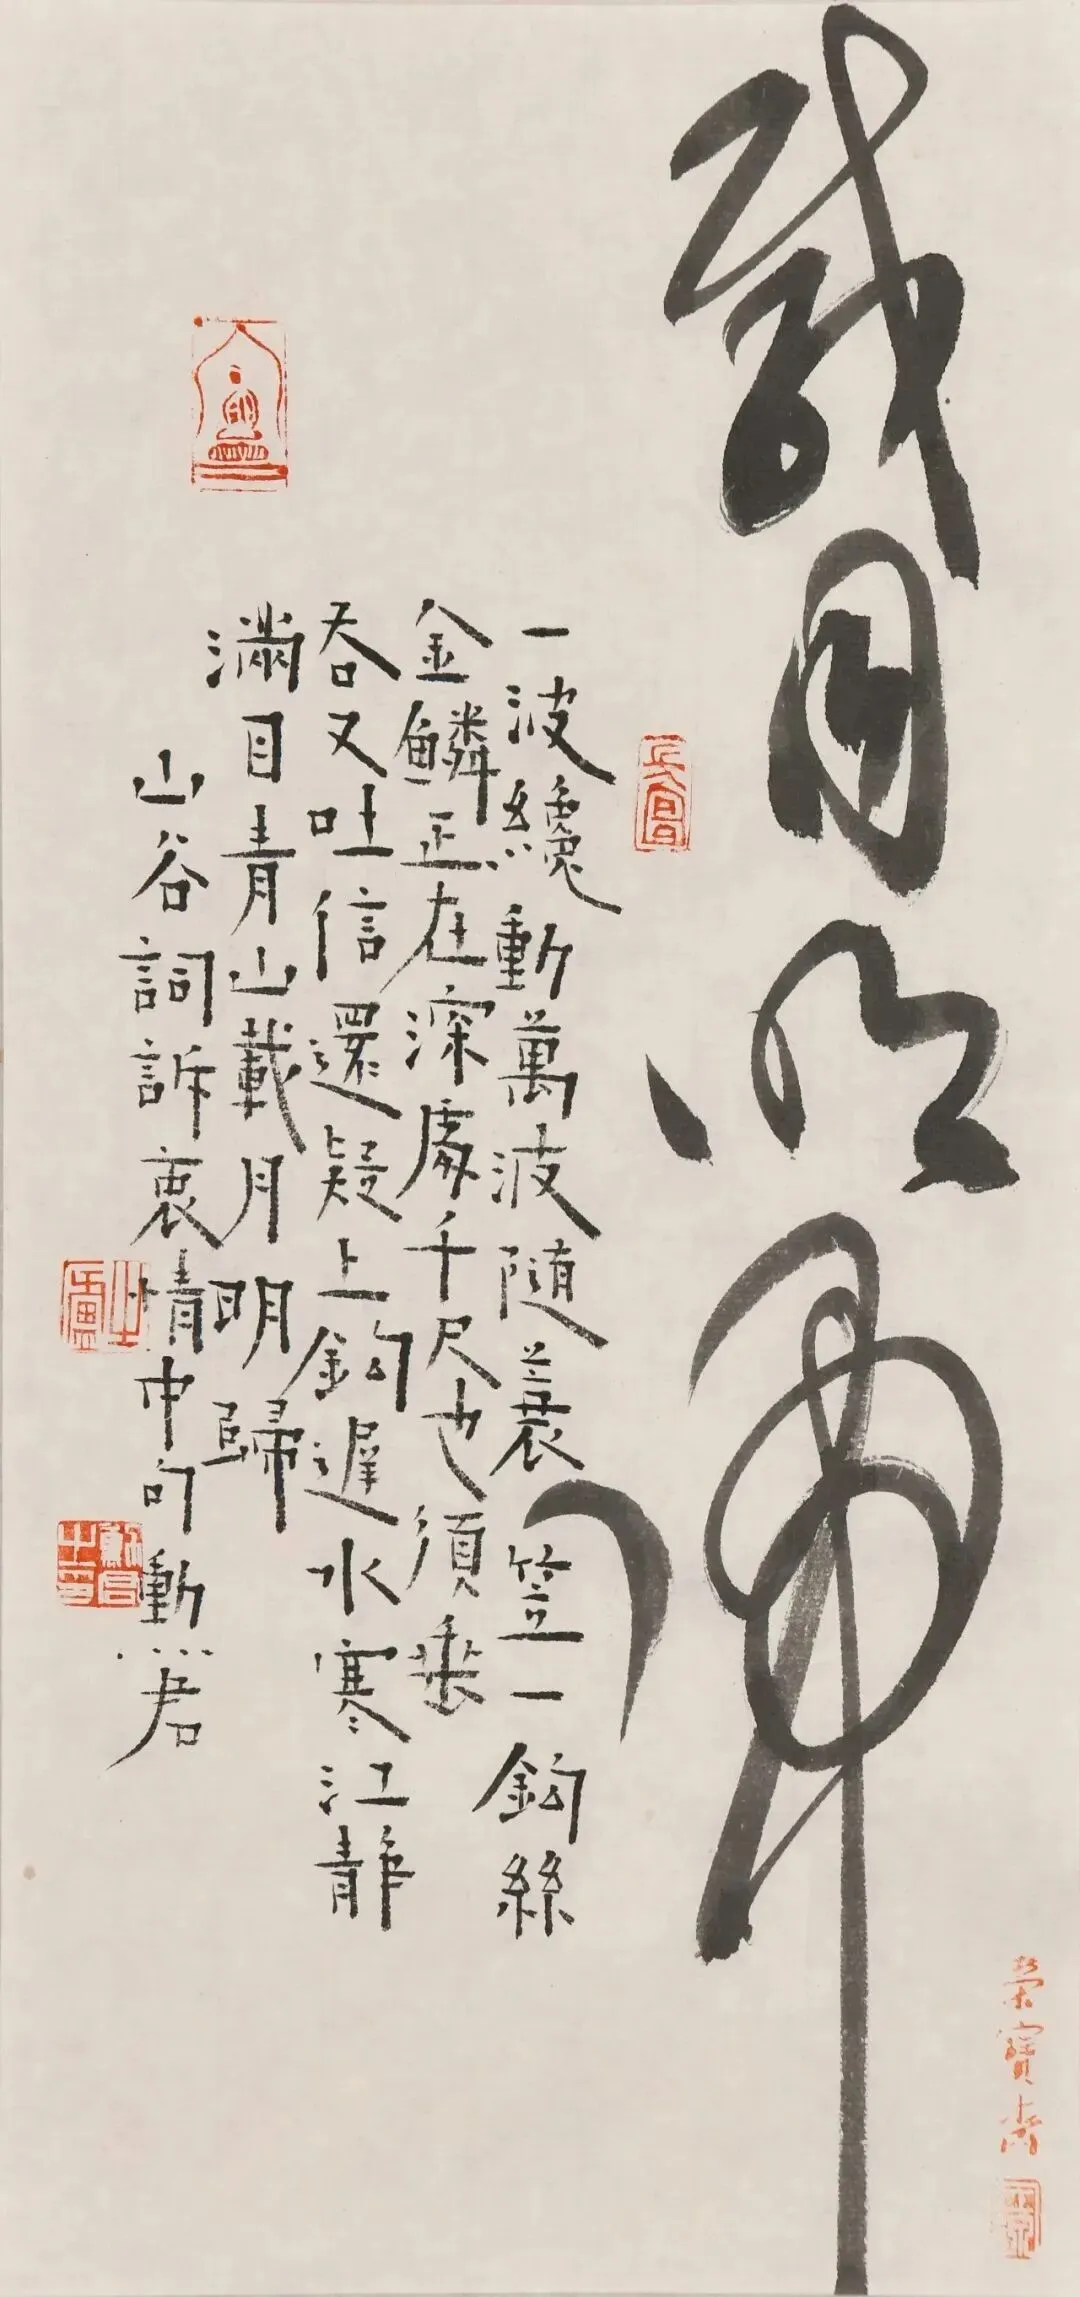 載月明歸
一波纔動萬波隨蓑笠一鈎絲
金鱗正在深處千尺也須垂
吞又吐信還疑上鈎遲水寒江靜
滿目青山載月明歸
山谷詞訴衷情中句勳君
榮寶齋